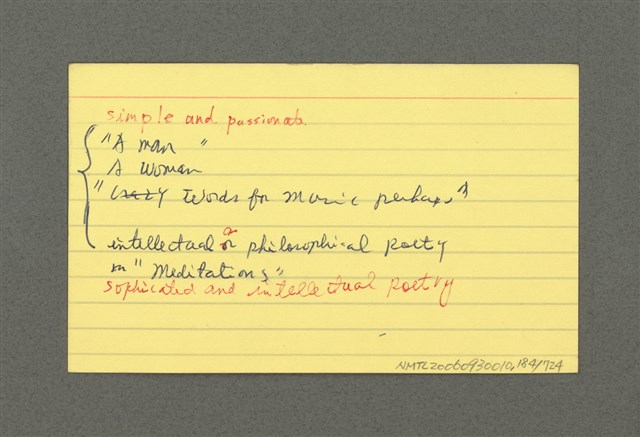 simple and passionate
"A man "
A Woman
"Crazy Words for Music perhaps"
intellectual or philosophical Poetry
in "Meditations"
sophicated and intellectual Poetry
NMTL20060930010,184/724